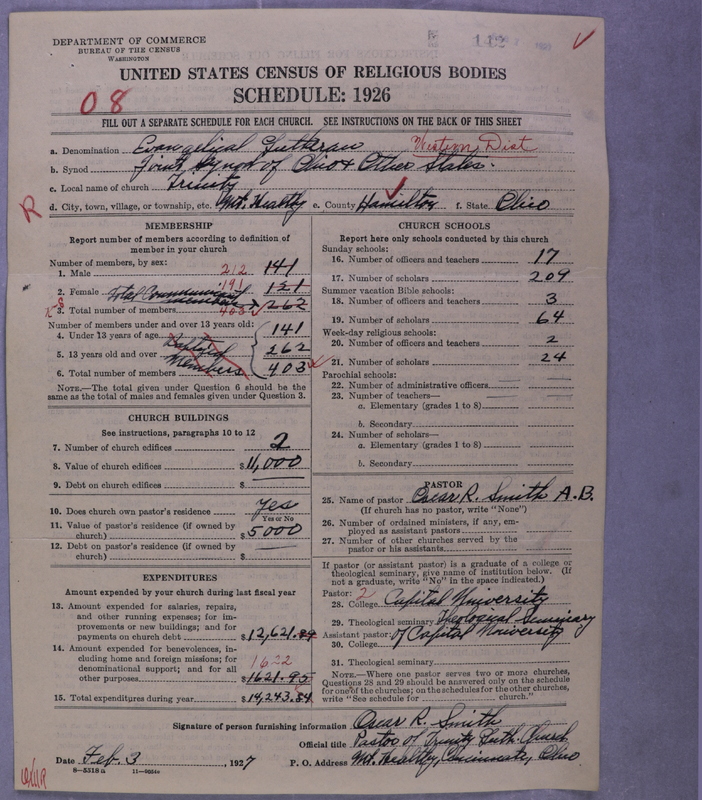 DEPARTMENT OF COMMERCE
BUREAU OF THE CENSUS
WASHINGTON
UNITED STATES CENSUS OF RELIGIOUS BODIES
SCHEDULE: 1926
08
FILL OUT A SEPARATE SCHEDULE FOR EACH CHURCH. SEE INSTRUCTIONS ON THE BACK OF THIS SHEET
a. Denomination Evangelical Lutheran Western Dist
b. Synod Joint Synod of Ohio & Other States.
c. Local name of church Trinity
R d. City, town, village, or township, etc. Mt. Healthy e. County Hamilton f. State Ohio
MEMBERSHIP
Report number of members according to definition of
member in your church
Number of members, by sex:
1. Male 212 141
2. Female 191 121
Total Communicant members
3. Total number of members 403 262
Number of members under and over 13 years old:
4. Under 13 years of age 141
5. 13 years old and over Baptized 262
6. Total number of members Members 403
NOTE.—The total given under Question 6 should be the
same as the total of males and females given under Question 3.
CHURCH BUILDINGS
See instructions, paragraphs 10 to 12
7. Number of church edifices 2
8. Value of church edifices $11,000
9. Debt on church edifices $
10. Does church own pastor's residence yes
Yes or No
11. Value of pastor's residence (if owned by
church) $5000
12. Debt on pastor's residence (if owned by
church) $
EXPENDITURES
Amount expended by your church during last fiscal year
13. Amount expended for salaries, repairs,
and other running expenses; for im-
provements or new buildings; and for
payments on church debt $12,621.89
14. Amount expended for benevolences, in-
cluding home and foreign missions; for
denominational support; and for all 1622
other purposes $1621.95
15. Total expenditures during year $14,243.84
CHURCH SCHOOLS
Report here only schools conducted by this church
Sunday schools:
16. Number of officers and teachers 17
17. Number of scholars 209
Summer vacation Bible schools:
18. Number of officers and teachers 3
19. Number of scholars 64
Week-day religious schools:
20. Number of officers and teachers 2
21. Number of scholars 24
Parochial schools:
22. Number of administrative officers
23. Number of teachers—
a. Elementary (grades 1 to 8)
b. Secondary
24. Number of scholars—
a. Elementary (grades 1 to 8)
b. Secondary
PASTOR
25. Name of pastor Oscar R. Smith A.B.
(If church has no pastor, write "None")
26. Number of ordained ministers, if any, em-
ployed as assistant pastors
27. Number of other churches served by the
pastor or his assistants
If pastor (or assistant pastor) is a graduate of a college or
theological seminary, give name of institution below. (If
not a graduate, write "No" in the space indicated.)
Pastor: 2
28. College Capital University
29. Theological seminary Theological Seminary
Assistant pastor: of Capital University
30. College
31. Theological seminary
NOTE.—Where one pastor serves two or more churches,
Questions 28 and 29 should be answered only on the schedule
for one of the churches; on the schedules for the other churches,
write "See schedule for church."
Signature of person furnishing information Oscar R. Smith
Official title Pastor of Trinity Luth. Church
Date Feb. 3, 1927 P. O. Address Mt. Healthy, Cincinnati, Ohio.
8—5318 a 11—9034